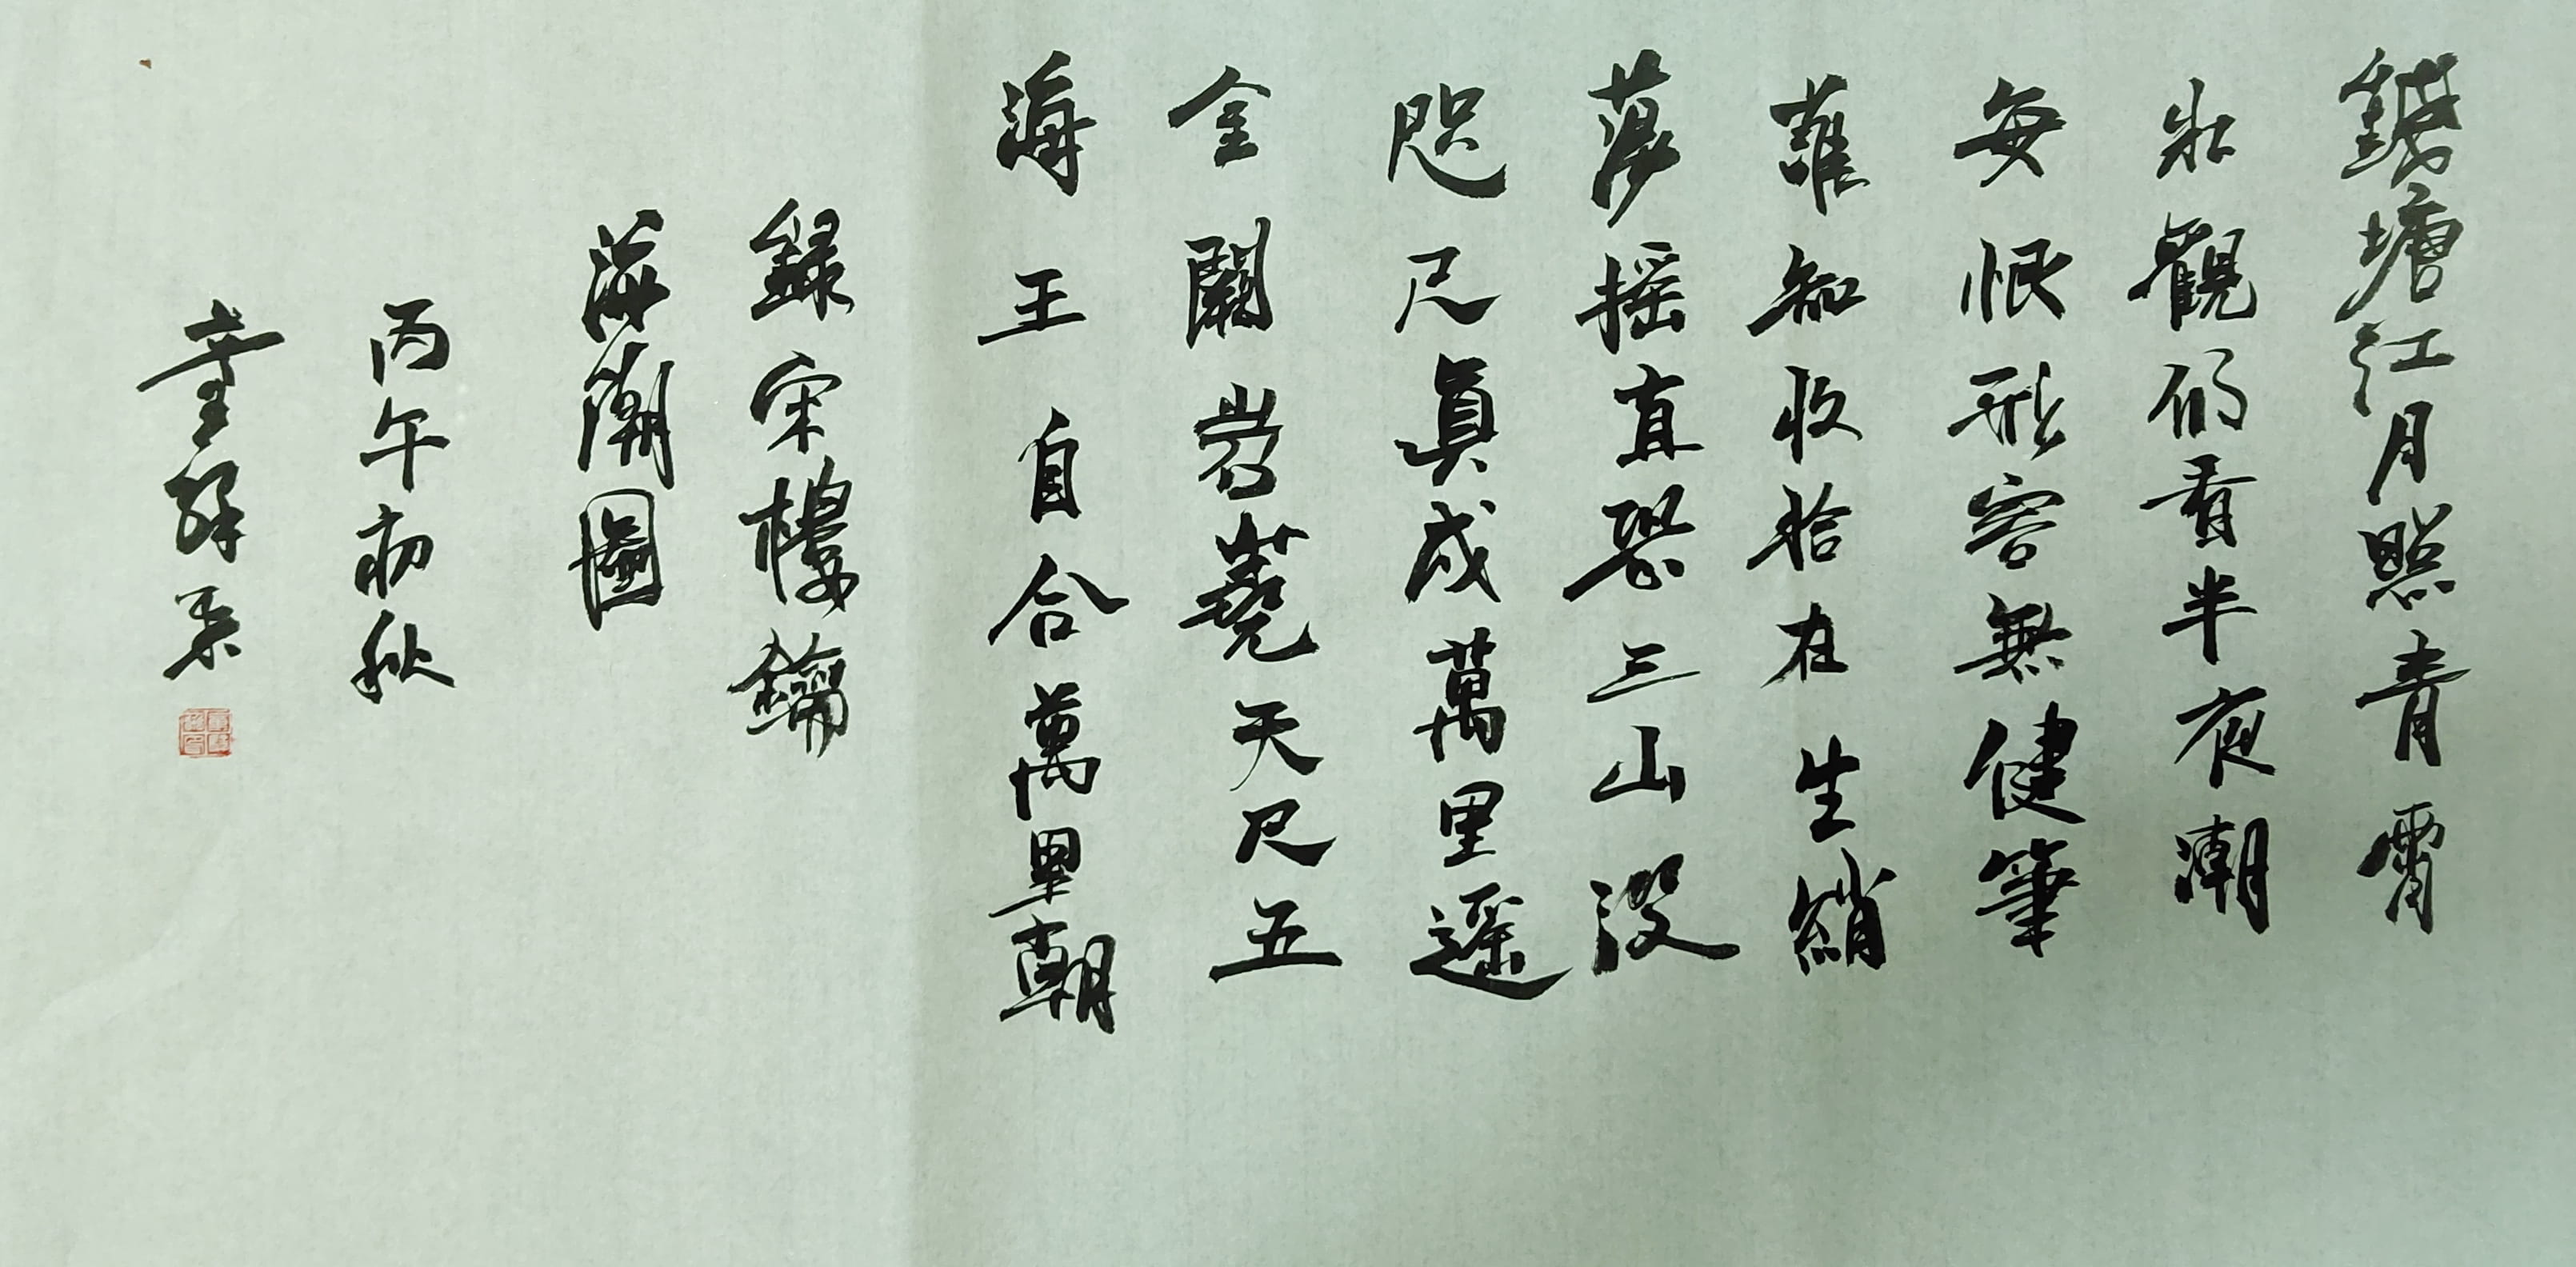 錢塘江月照青霄
壯觀仍看半夜潮
每恨形容無健筆
誰知收拾在生綃
蕩搖直恐三山沒
咫尺真成萬里遥
金闕岧蕘天尺五
海王自合萬里朝
録宋樓鑰
海潮圖
丙午初秋
童